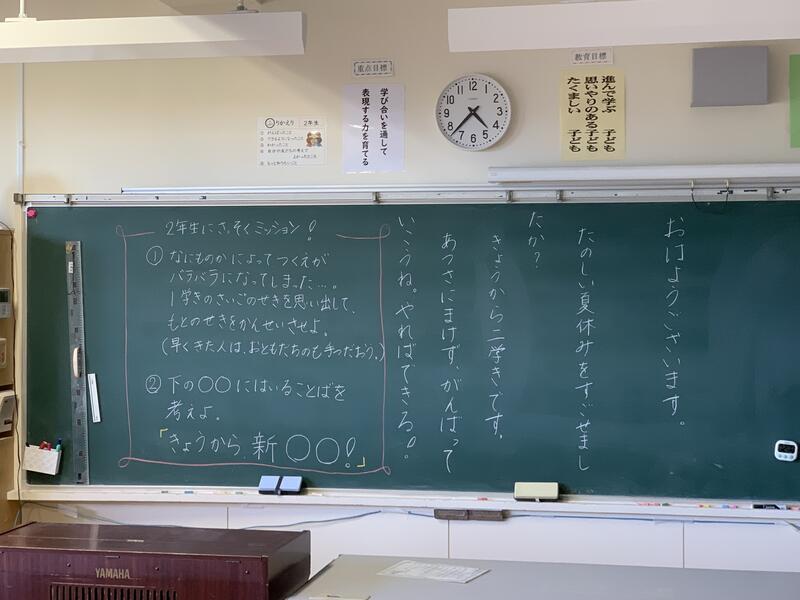 重点目標
学び合いを通して
表現する力を育てる
教育目標
進んで学ぶ 子ども
思いやりのある子ども
たくましい 子ども
ふりかえり 2年生
12
1
2
3
4
5
6
7
8
9
10
11
おはようございます。
たのしい夏休みをすごせまし
たか?
きょうから二学きです。
あつさにまけず、がんばって
いこうね。やればできる!!
2年生にさっそくミッション!
① なにものかによってつくえが
バラバラになってしまった…。
1学きのさいごのせきを思い出して、
もとのせきをかんせいさせよ。
(早くきた人は、おともだちのも手つだおう。)
② 下の〇〇にはいることばを
考えよ。
「きょうから、新〇〇!」
YAMAHA